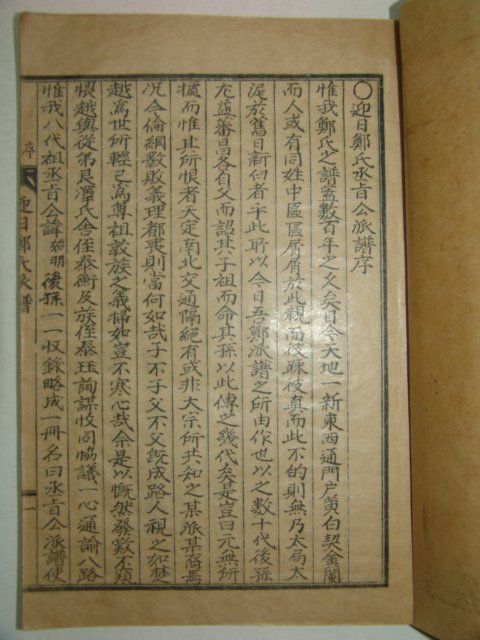 ○迎日鄭氏丞旨公派譜序
惟我鄭氏之譜盖數百年之久矣目今天地一新東西通門户黄白契金蘭
而人或有同姓中區區屑屑於此親而彼疎彼真而此不的則無乃太局太
泥於舊日新旧者乎此所以今日吾鄭派譜之所由作也以之數十代後孫
尤益番昌各自父而詔其子祖而命其孫以此傳之幾代矣是豈曰元無所
據而惟其所恨者天定南北交通隔絕有或非大宗所共知之某派某裔焉
况今倫綱斁敗義理都喪則當何如哉子不子父不父旣成路人視之如楚
越焉世所輕已爲尊祖敦族之義掃如豈不寒心哉余是以慨然發歎不煩
愄越與從弟良澤氏舍侄泰衡及族侄泰珏詢謀恔同恊議一心通諭八路
惟我八代祖丞旨公諱始明後孫一一收錄略成一冊名曰丞旨公派譜使
序
迎日鄭氏派譜
一